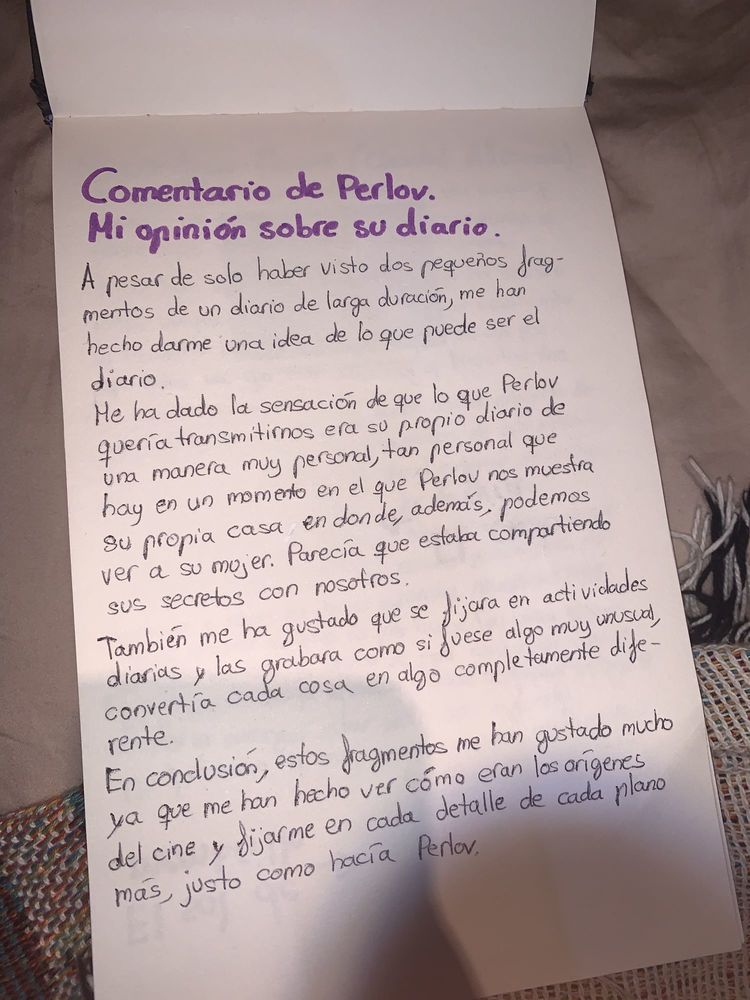 Comentario de Perlov.
Mi opinión sobre su diario.
A pesar de solo haber visto dos pequeños frag-
mentos de un diario de larga duración, me han
hecho darme una idea de lo que puede ser el
diario.
Me ha dado la sensación de que lo que Perlov
quería transmitirnos era su propio diario de
una manera muy personal, tan personal que
hay en un momento en el que Perlov nos muestra
su propia casa en donde, además, podemos
ver a su mujer. Parecía que estaba compartiendo
sus secretos con nosotros.
También me ha gustado que se fijara en actividades
diarias y las grabara como si fuese algo muy unusual,
convertía cada cosa en algo completamente dife-
rente.
En conclusión, estos fragmentos me han gustado mucho
ya que me han hecho ver cómo eran los orígenes
del cine y fijarme en cada detalle de cada plano
más, justo como hacía Perlov.